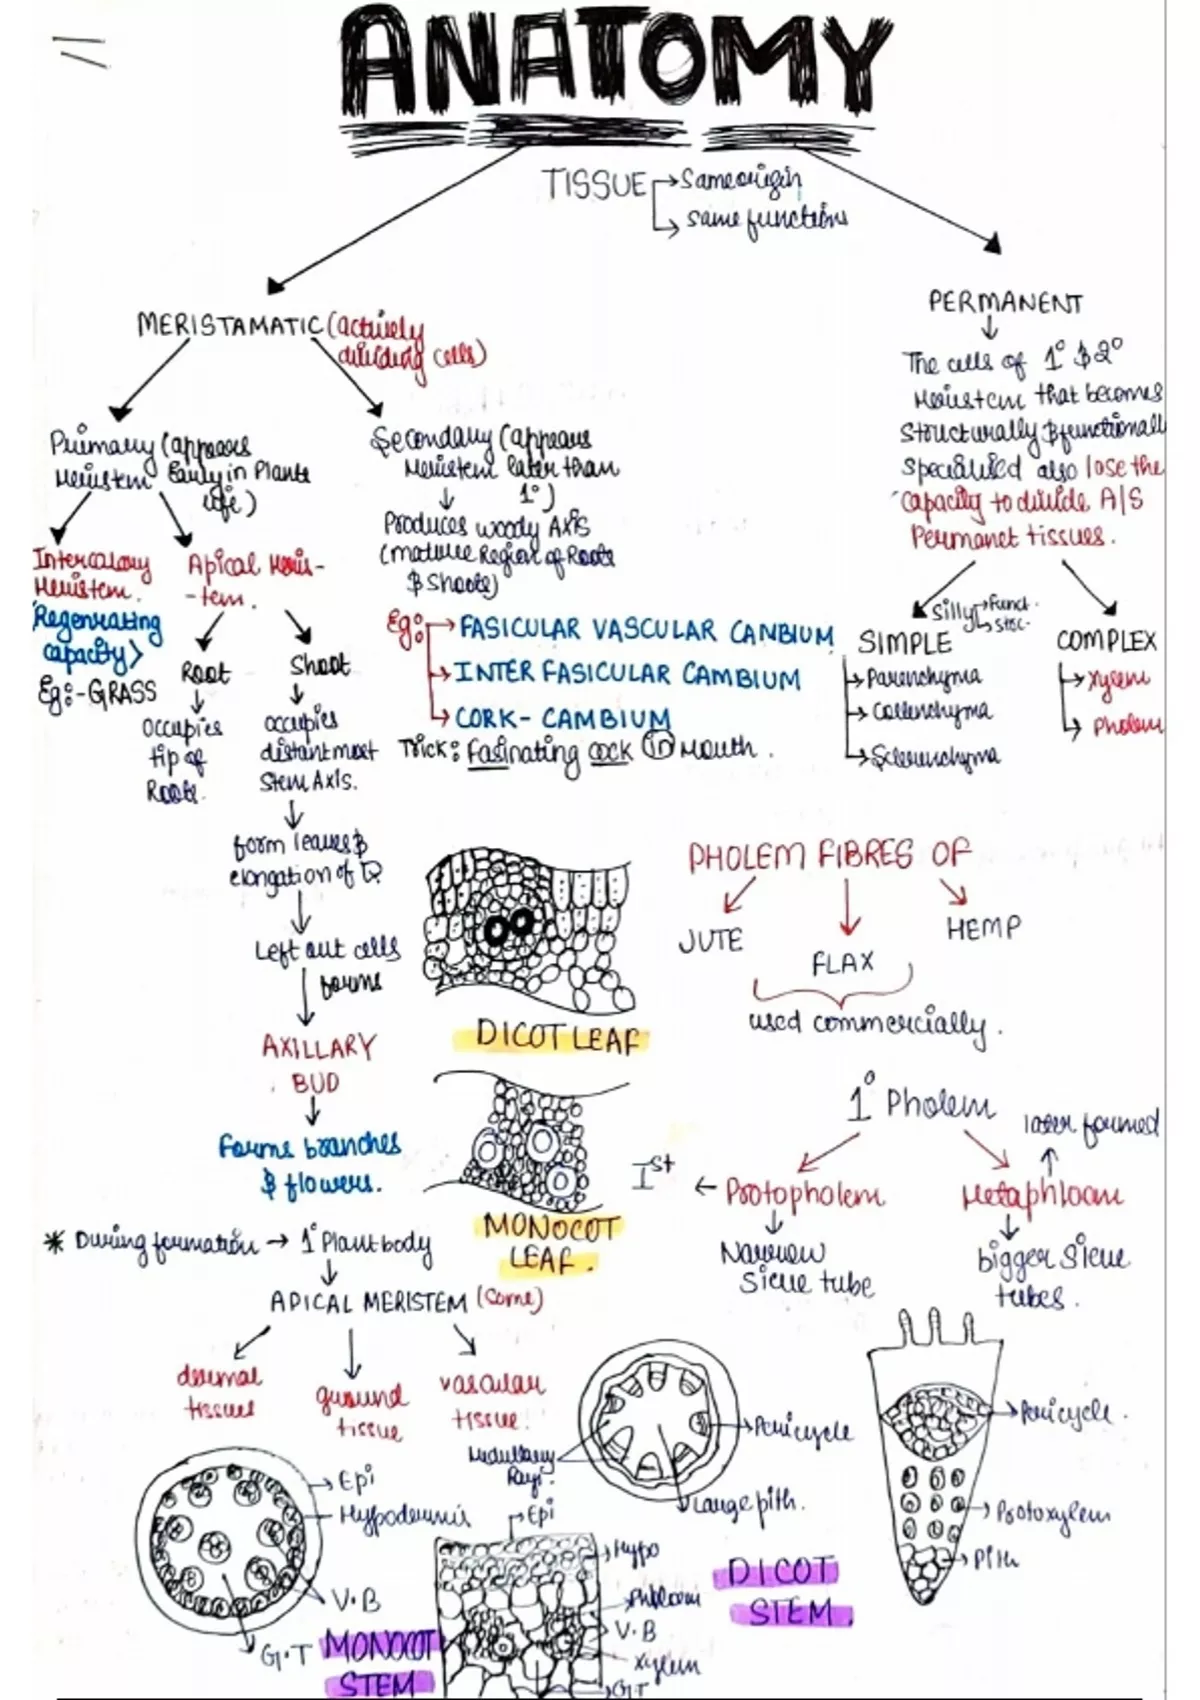 ANATOMY
TISSUE → Same origin
→ same functions
MERISTAMATIC (actively
dividing cells)
Primary (appears
Meristem Early in Plants
life)
Intercalary
Meristem.
Regenrating
capacity>
Eg:- GRASS
Apical Meris-
-tem.
Root
↓
Occupies
tip of
Roots.
Shoot
↓
occupies
distantmost
Stem Axis.
↓
form leaves &
elongation of
↓
Left out cells
↓ forms
AXILLARY
BUD
↓
Forms branches
& flowers.
Secondary (appears
Meristem later than
↓ 1°)
Produces woody AXIS
(mature Region of Roots
& Shoots)
Eg: → FASICULAR VASCULAR CANBIUM
→ INTER FASICULAR CAMBIUM
→ CORK- CAMBIUM
Trick: Fasinating cock in Mouth.
PERMANENT
↓
The cells of 1° & 2°
Meristem that becomes
Structurally & functionall
Specialised also lose the
capacity to divide A/S
Permanet tissues.
Silly → funct.
→ strc.
SIMPLE
→ Parenchyma
→ Collenchyma
→ Sclerenchyma
COMPLEX
→ Xylem
→ Pholem
PHOLEM FIBRES OF
JUTE
FLAX
HEMP
used commercially.
DICOT LEAF
MONOCOT
LEAF.
1° Pholem
later formed
↑
Ist ← Protopholem
↓
Narrow
Sieve tube
Metaphloam
↓
bigger Sieve
tubes.
* During formation → 1° Plant body
↓
APICAL MERISTEM (Come)
dermal
tissues
ground
tissue
vascular
tissue.
Epi
Hypodermis
V.B
G.T
MONOCOT
STEM
Medullary
Rays.
Pericycle
Large pith.
Epi
Hypo
Phloem
V.B
Xylem
G.T
DICOT
STEM.
Pericycle.
Protoxylem
Pith